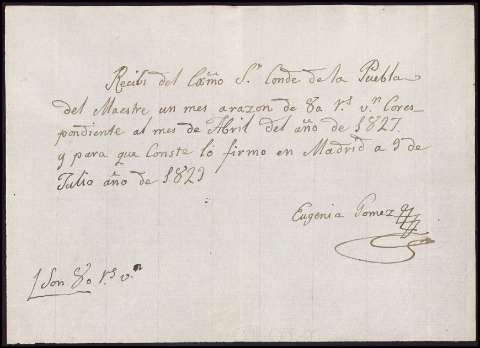 Recibi del Exmo. Sr. Conde de la Puebla
del Maestre un mes a razon de 80 rs. vn. Cores
pondiente al mes de Abril del año de 1827.
y para que Conste lo firmo en Madrid a 9 de
Julio año de 1829
Eugenia Gomez
Son 80 rs. vn.